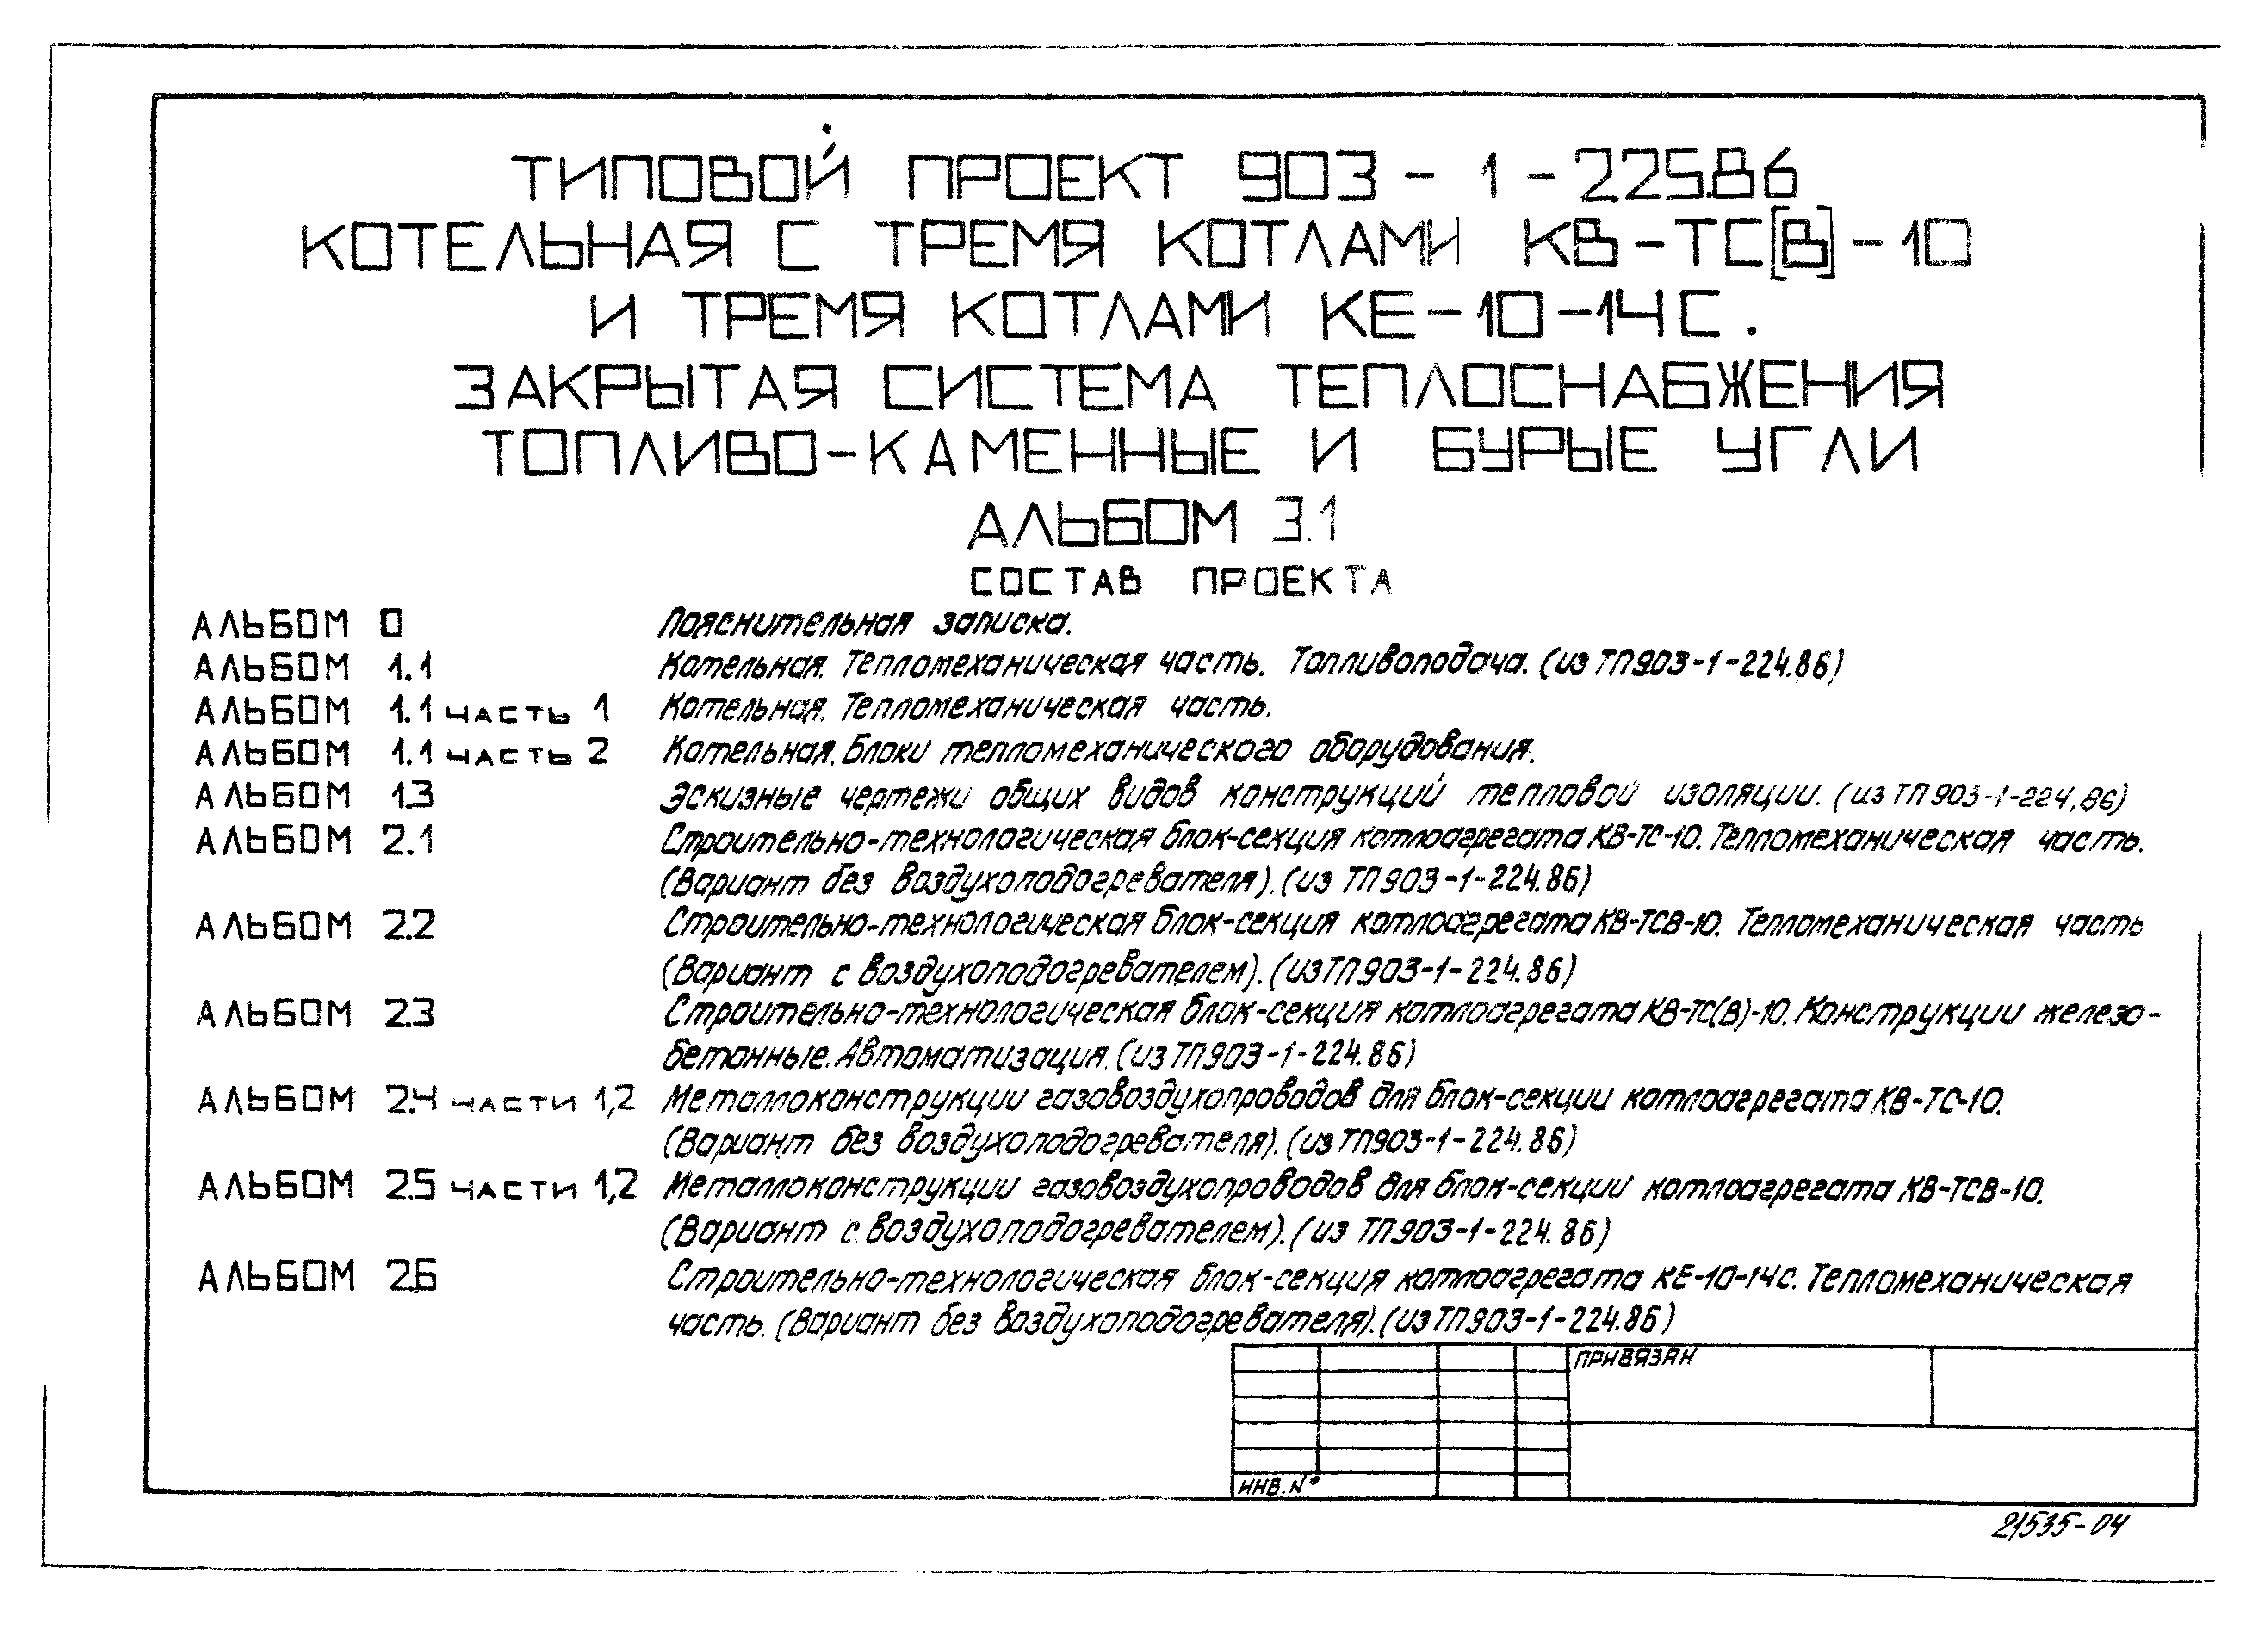 ТИПОВОЙ ПРОЕКТ 903-1-225.86
КОТЕЛЬНАЯ С ТРЕМЯ КОТЛАМИ КВ-ТС[В]-10
И ТРЕМЯ КОТЛАМИ КЕ-10-14С.
ЗАКРЫТАЯ СИСТЕМА ТЕПЛОСНАБЖЕНИЯ
ТОПЛИВО-КАМЕННЫЕ И БУРЫЕ УГЛИ
АЛЬБОМ 3.1
СОСТАВ ПРОЕКТА
АЛЬБОМ 0 Пояснительная записка.
АЛЬБОМ 1.1 Котельная. Тепломеханическая часть. Топливоподача. (из ТП903-1-224.86)
АЛЬБОМ 1.1 ЧАСТЬ 1 Котельная. Тепломеханическая часть.
АЛЬБОМ 1.1 ЧАСТЬ 2 Котельная. Блоки тепломеханического оборудования.
АЛЬБОМ 1.3 Эскизные чертежи общих видов конструкций тепловой изоляции. (из ТП903-1-224,86)
АЛЬБОМ 2.1 Строительно-технологическая блок-секция котлоагрегата КВ-ТС-10. Тепломеханическая часть.
(Вариант без воздухоподогревателя). (из ТП903-1-224.86)
АЛЬБОМ 2.2 Строительно-технологическая блок-секция котлоагрегата КВ-ТСВ-10. Тепломеханическая часть
(Вариант с воздухоподогревателем). (из ТП903-1-224.86)
АЛЬБОМ 2.3 Строительно-технологическая блок-секция котлоагрегата КВ-ТС(В)-10. Конструкции железо-
бетонные. Автоматизация. (из ТП903-1-224.86)
АЛЬБОМ 2.4 ЧАСТИ 1,2 Металлоконструкции газовоздухопроводов для блок-секции котлоагрегата КВ-ТС-10.
(Вариант без воздухоподогревателя). (из ТП903-1-224.86)
АЛЬБОМ 2.5 ЧАСТИ 1,2 Металлоконструкции газовоздухопроводов для блок-секции котлоагрегата КВ-ТСВ-10.
(Вариант с воздухоподогревателем). (из ТП903-1-224.86)
АЛЬБОМ 2.6 Строительно-технологическая блок-секция котлоагрегата КЕ-10-14С. Тепломеханическая
часть. (Вариант без воздухоподогревателя). (из ТП903-1-224.86)
ПРИВЯЗАН
ИНВ. №
21535-04